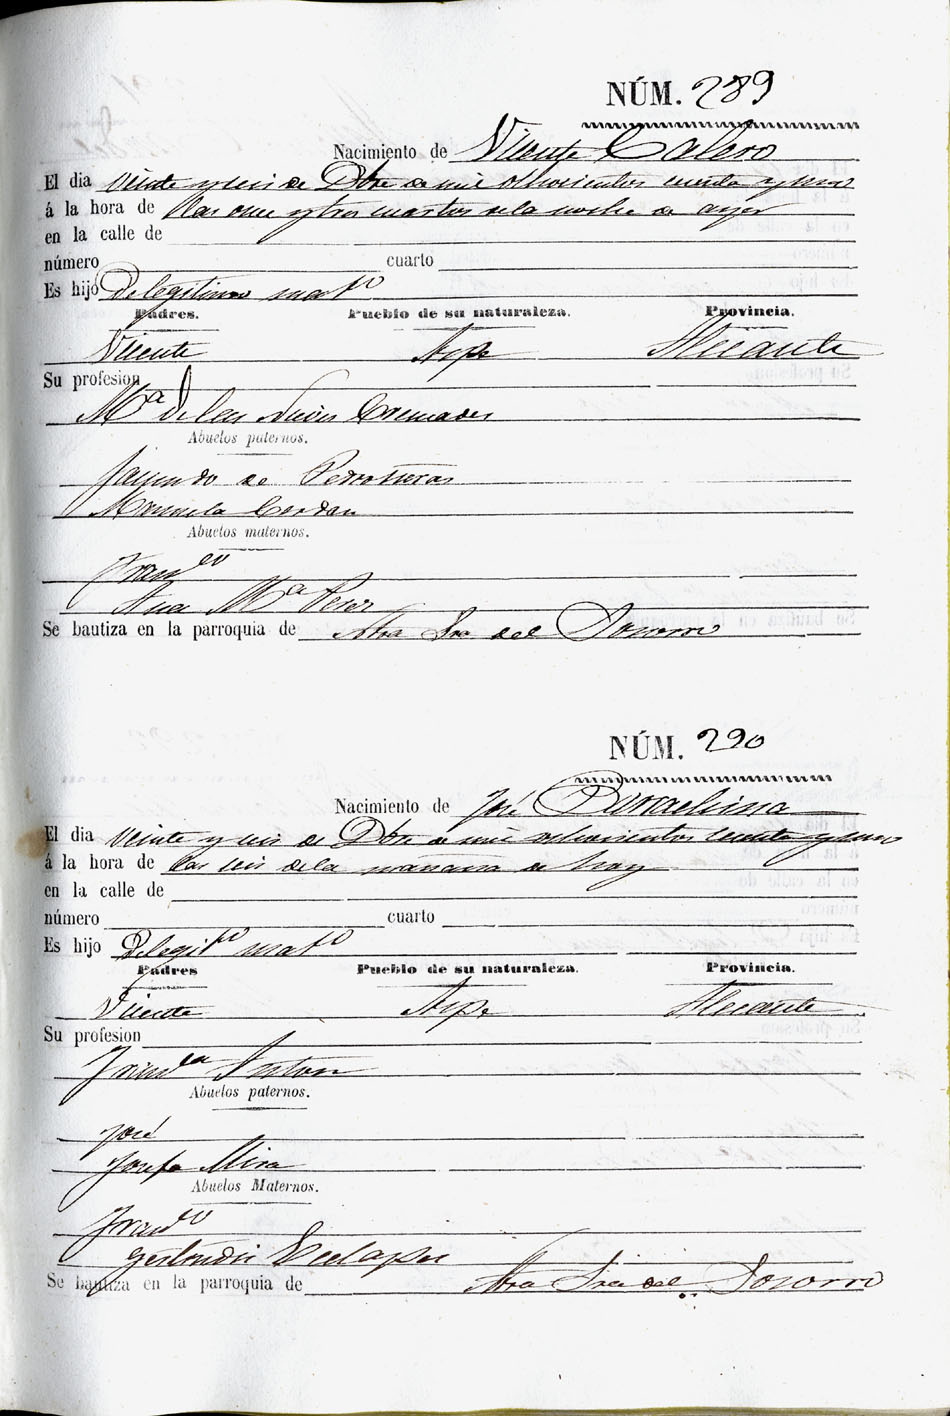 NÚM. 289
Nacimiento de Vicente Calero
El dia veinte y seis de Dbre de mil ochocientos sesenta y uno
á la hora de las once y tres cuartos de la noche de ayer
en la calle de
número cuarto
Es hijo de legitimo matº
Padres. Pueblo de su naturaleza. Provincia.
Vicente Aspe Alicante
Su profesion
Mª de las Nieves Cremades
Abuelos paternos.
Jayundo de Pedroñeras
Manuela Cerdan
Abuelos maternos.
Franco
Ana Mª Perez
Se bautiza en la parroquia de Ntra Sra del Socorro
NÚM. 290
Nacimiento de José
El dia veinte y seis de Dbre de mil ochocientos sesenta y uno
á la hora de las seis de la mañana de hoy
en la calle de
número cuarto
Es hijo de legitº matº
Padres Pueblo de su naturaleza. Provincia.
Vicente Aspe Alicante
Su profesion
Franca Anton
Abuelos paternos.
José
Josefa Mira
Abuelos Maternos.
Franco
Gertrudis
Se bautiza en la parroquia de Ntra Sra del Socorro